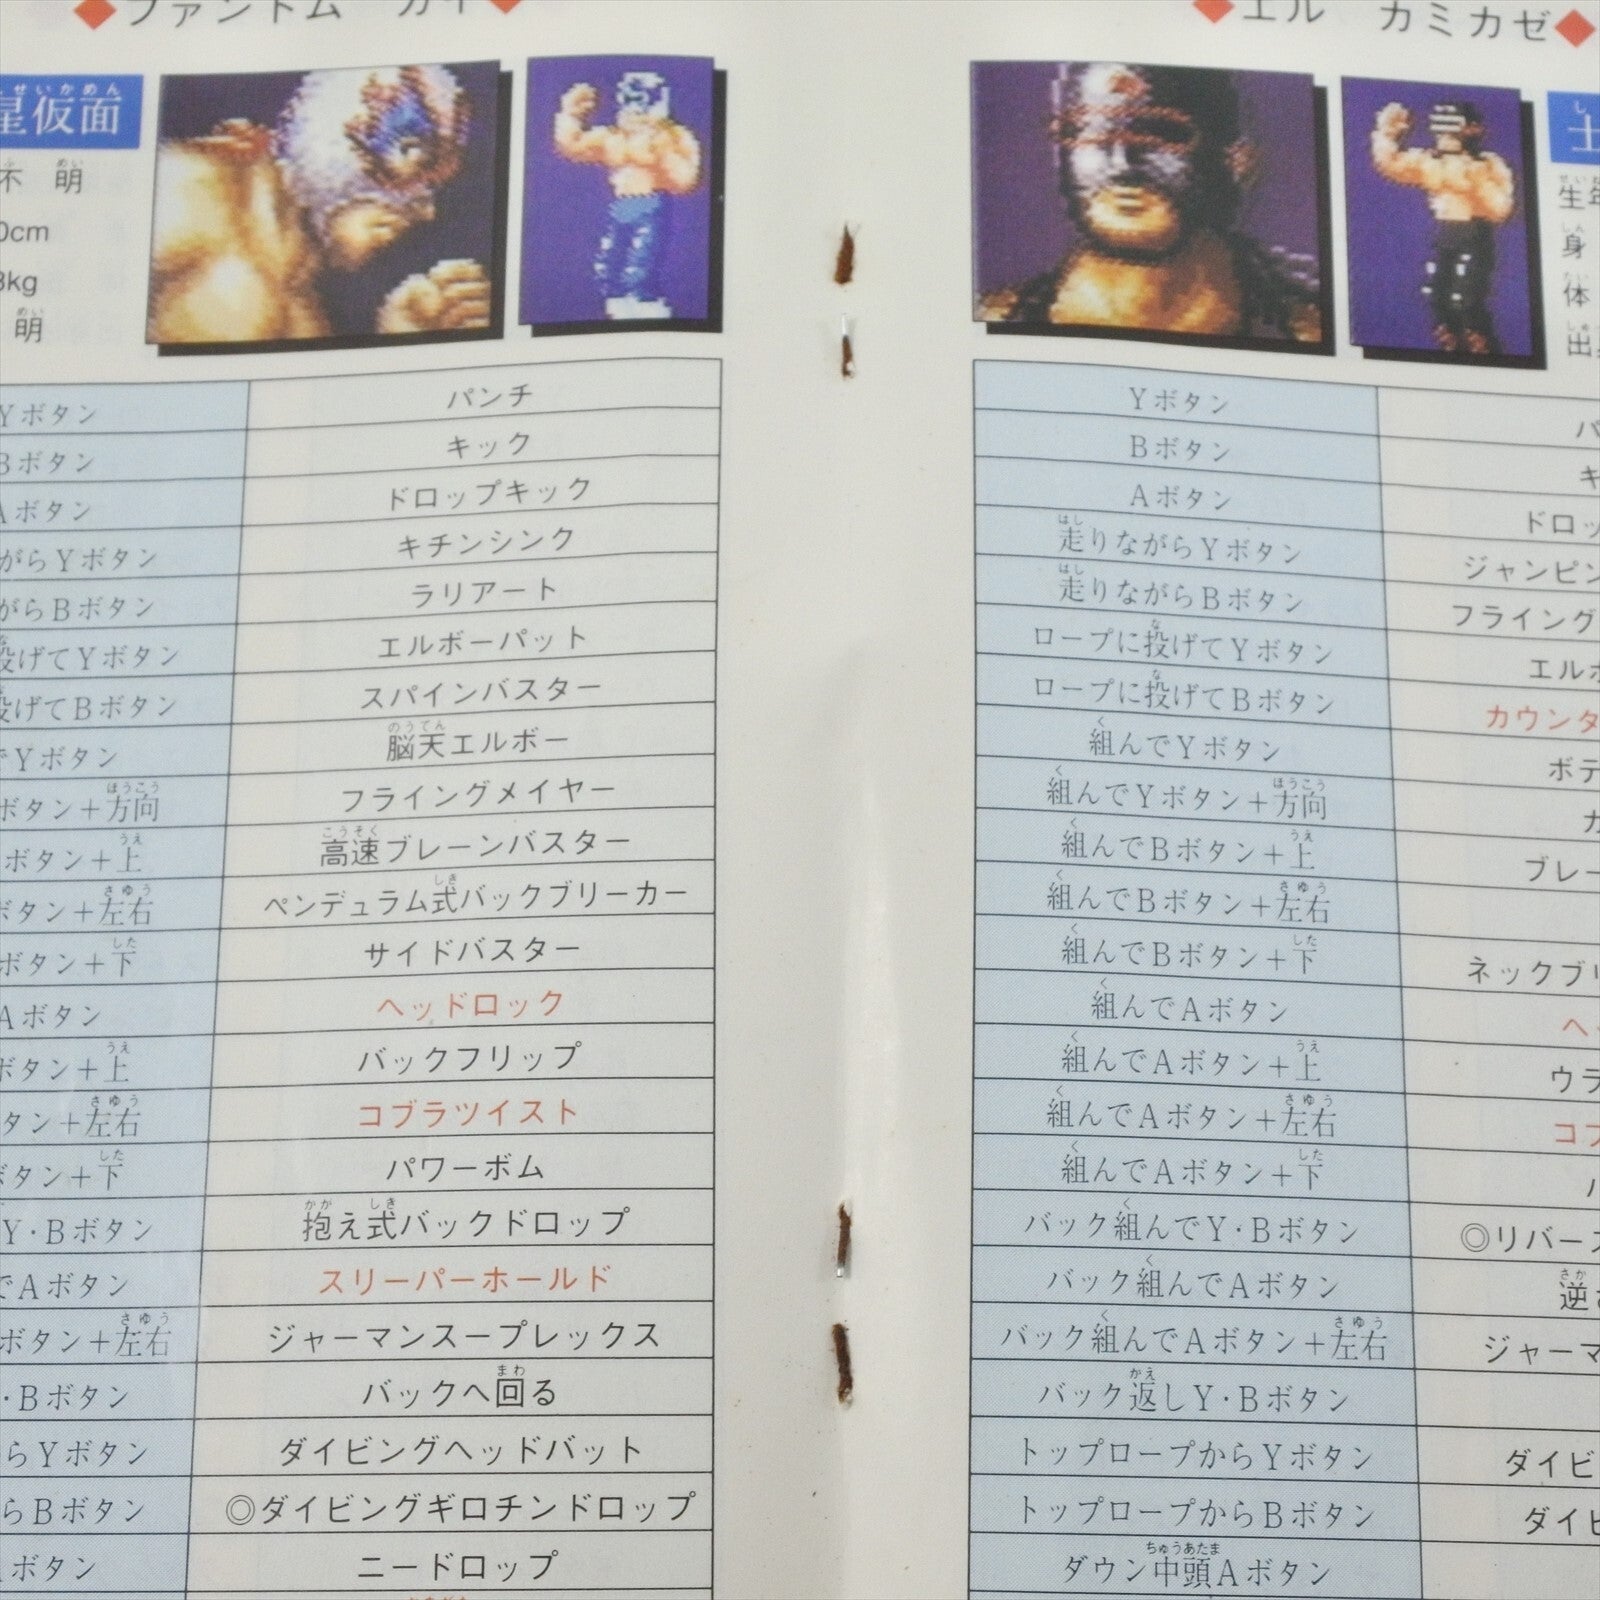 ◆ファントム ガイ◆
星仮面
せいかめん
不明
ふ めい
0cm
8kg
明
めい
Yボタン パンチ
Bボタン キック
Aボタン ドロップキック
がらYボタン キチンシンク
がらBボタン ラリアート
投げてYボタン エルボーパット
投げてBボタン スパインバスター
でYボタン 脳天エルボー
のうてん
ボタン+方向 フライングメイヤー
ほうこう
ボタン+上 高速ブレーンバスター
うえ こうそく
ボタン+左右 ペンデュラム式バックブリーカー
さゆう しき
ボタン+下 サイドバスター
した
Aボタン ヘッドロック
ボタン+上 バックフリップ
うえ
タン+左右 コブラツイスト
さゆう
ボタン+下 パワーボム
した
Y・Bボタン 抱え式バックドロップ
かか しき
でAボタン スリーパーホールド
ボタン+左右 ジャーマンスープレックス
さゆう
・Bボタン バックへ回る
まわ
らYボタン ダイビングヘッドバット
らBボタン ◎ダイビングギロチンドロップ
ボタン ニードロップ
◆エル カミカゼ◆
士
し
生年
身
しん
体
たい
出
しゅ
Yボタン パ
Bボタン キ
Aボタン ドロッ
走りながらYボタン ジャンピン
はし
走りながらBボタン フライング
はし
ロープに投げてYボタン エルボ
な
ロープに投げてBボタン カウンタ
な
組んでYボタン ボデ
く
組んでYボタン+方向 カ
く ほうこう
組んでBボタン+上 ブレー
く うえ
組んでBボタン+左右
く さゆう
組んでBボタン+下 ネックブリ
く した
組んでAボタン ヘ
く
組んでAボタン+上 ウラ
く うえ
組んでAボタン+左右 コブ
く さゆう
組んでAボタン+下
く した
バック組んでY・Bボタン ◎リバース
く
バック組んでAボタン 逆さ
く さか
バック組んでAボタン+左右 ジャーマ
く さゆう
バック返しY・Bボタン
かえ
トップロープからYボタン ダイビ
トップロープからBボタン ダイビ
ダウン中頭Aボタン
ちゅうあたま